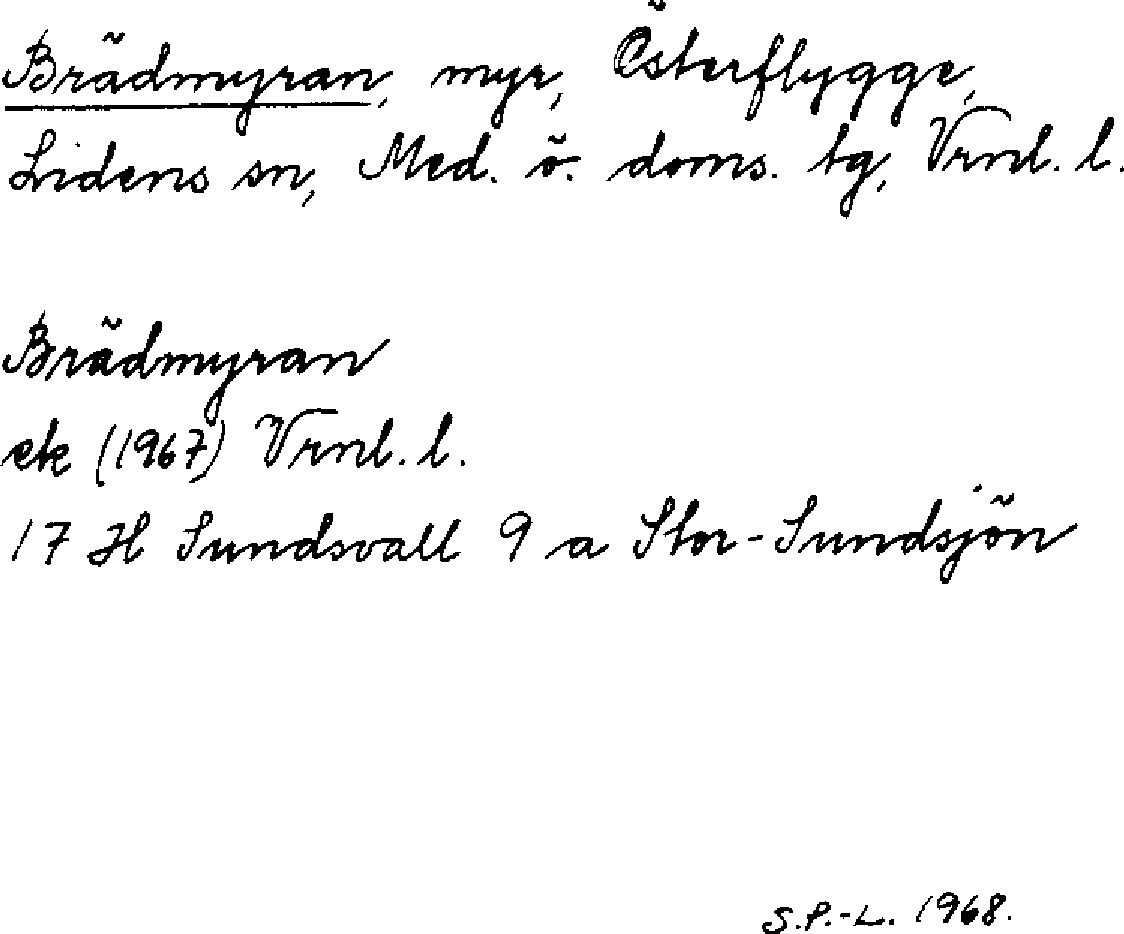 Brädmyran, myr, Österflygge,
Lidens sn, Med. ö. doms. tg, Vrnl. l.
Brädmyran
ek (1967) Vrnl. l.
17 H Sundsvall 9 a Stor-Sundsjön
S.P.-L. 1968.